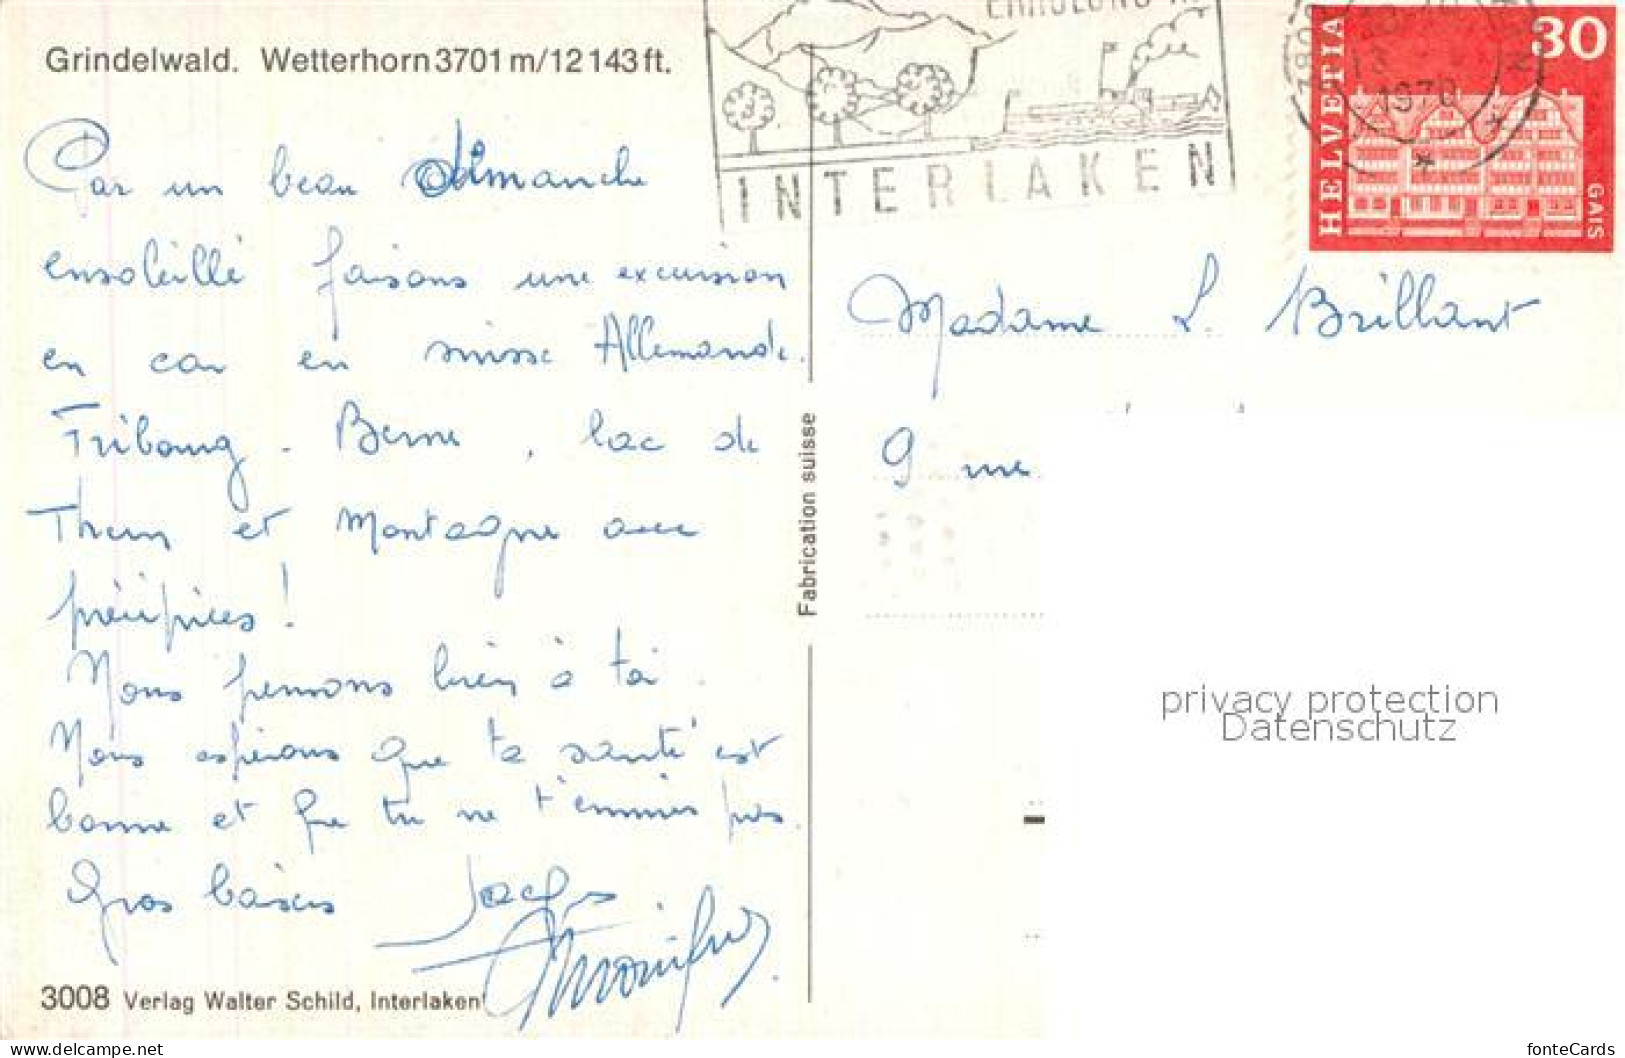 Grindelwald. Wetterhorn 3701 m/12 143 ft.
Par un beau dimanche
ensoleillé faisons une excursion
en car en suisse Allemande.
Fribourg - Berne, lac de
Thun et Montagne avec
précipices!
Nous pensons bien à toi.
Nous espérons que ta santé est
bonne et que tu ne t'ennuies pas.
Gros baisers Jacques
3008 Verlag Walter Schild, Interlaken
Fabrication suisse
INTERLAKEN
1970
HELVETIA
30
GAIS
Madame L. Brillant
9 rue
privacy protection
Datenschutz
delcampe.net
fonteCards